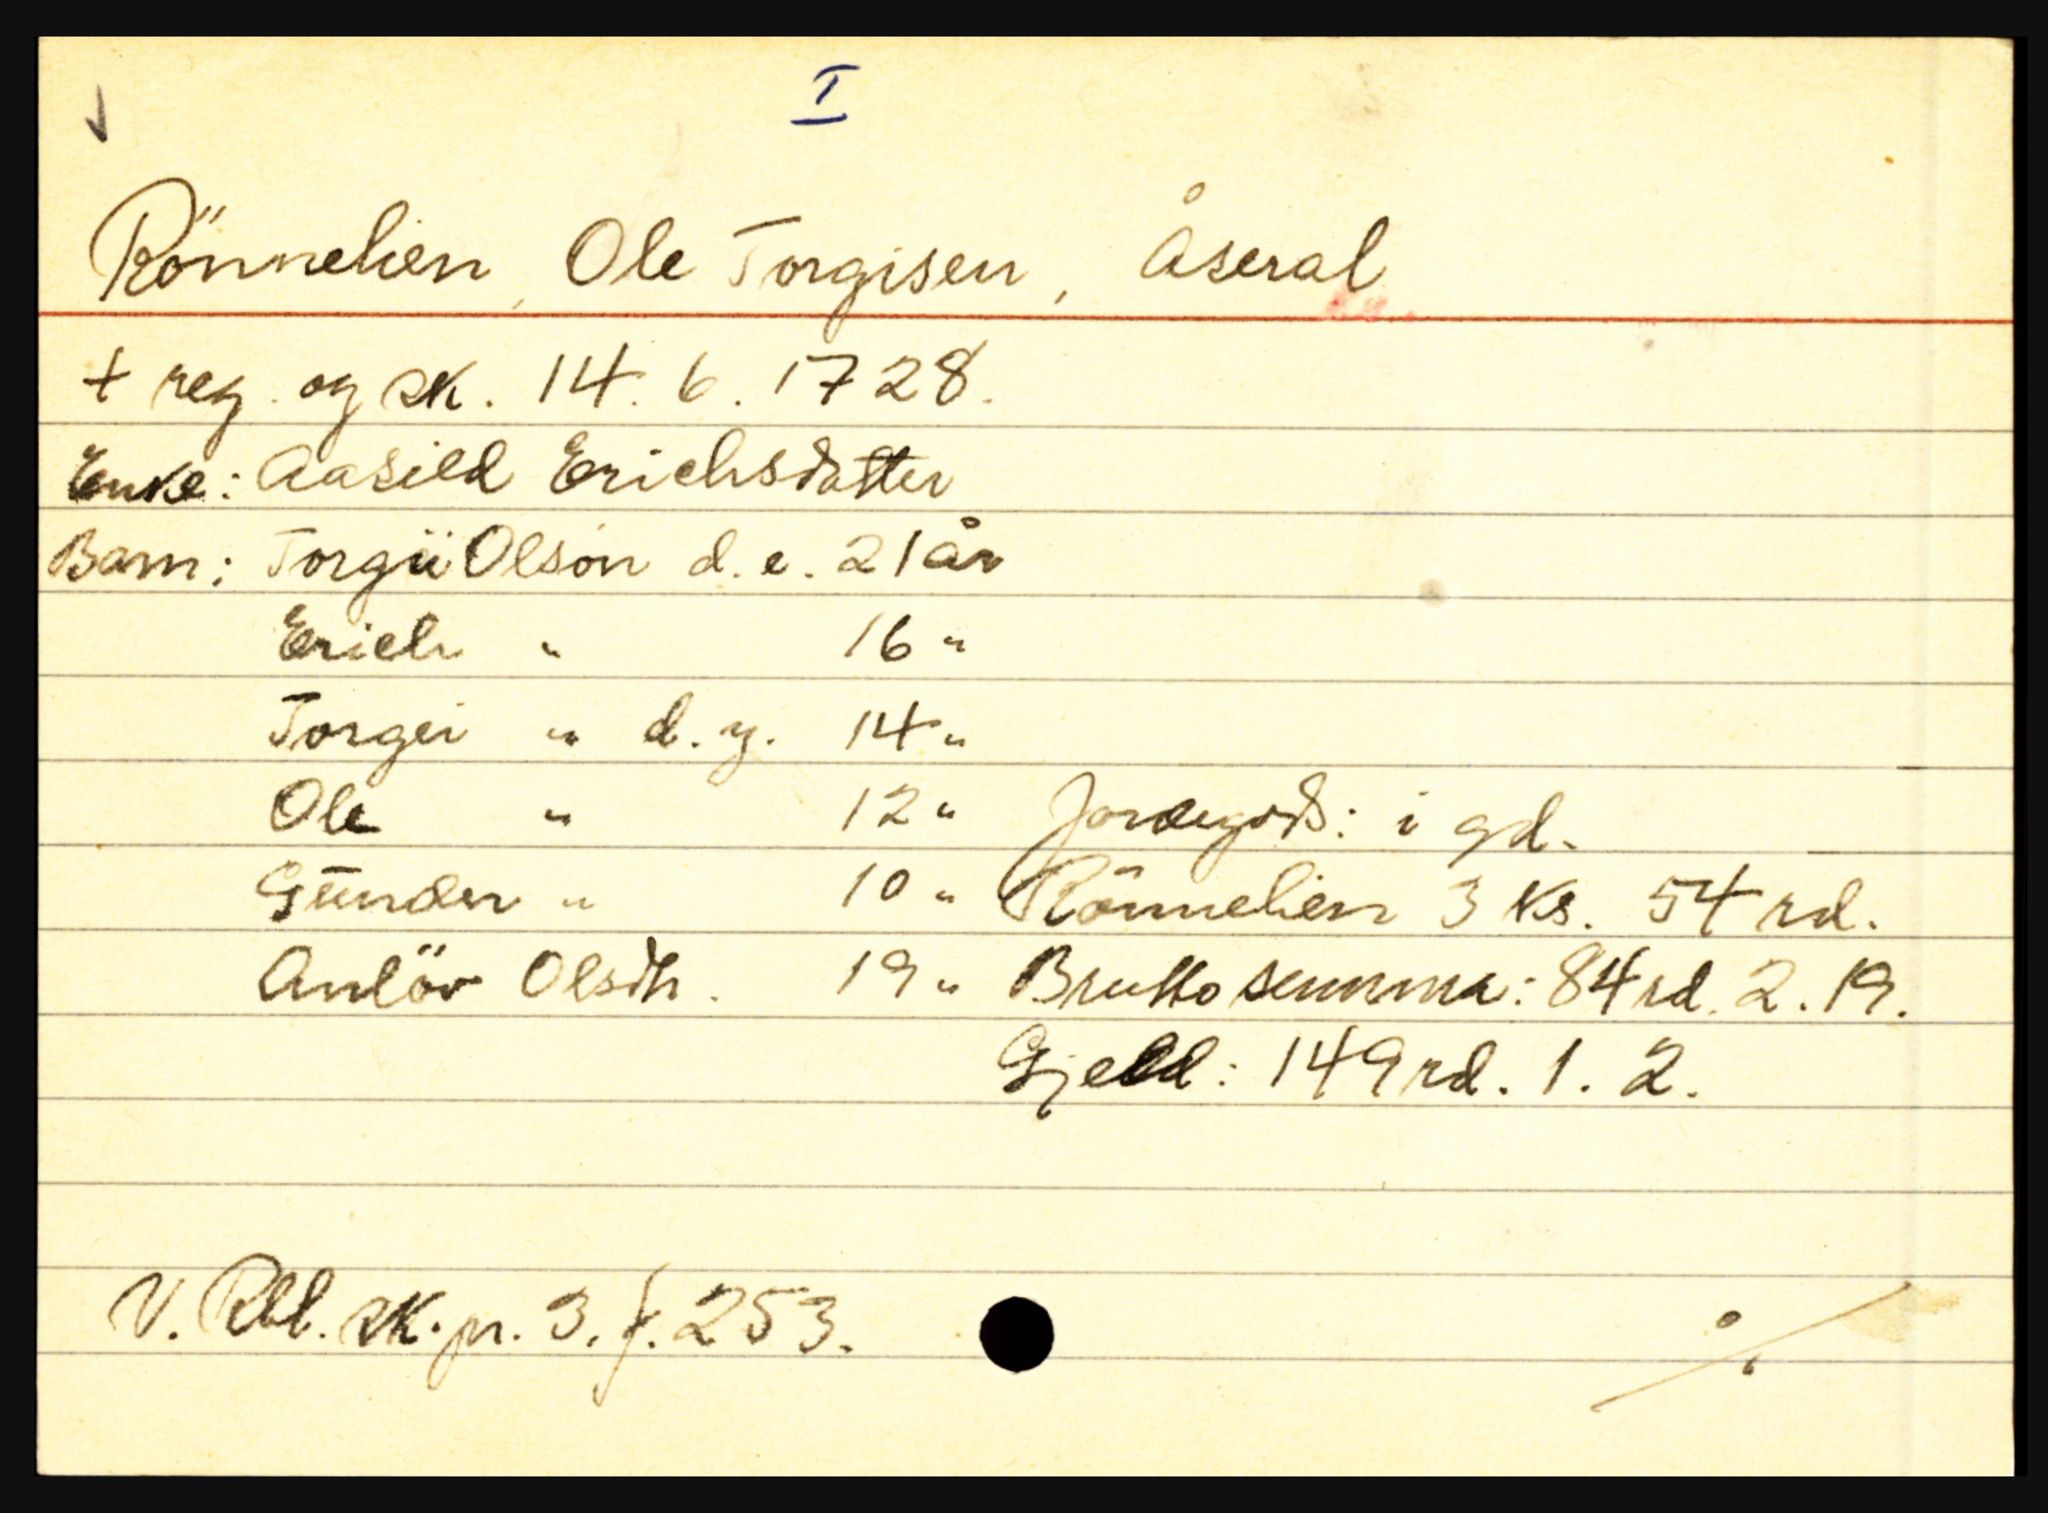 I
Rönnelien, Ole Torgisen, Åseral
+ reg. og sk. 14. 6. 1728.
Enke: Aasild Erichsdatter
Barn: Torgii Olson d. e. 21 år
Erich " 16 "
Torgei " d. y. 14 "
Ole " 12 " Jordegods: i gd.
Gunder " 10 " Rönnelien 3 ks. 54 rd.
Anlöv Olsdt. 19 " Brutto summa: 84 rd. 2. 19.
Gjeld: 149 rd. 1. 2.
V. Rbl. sk. pr. 3. f. 253.
%